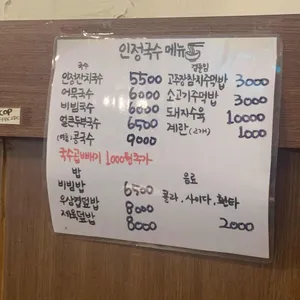 인정국수 메뉴
국수
인정잔치국수 5500
어묵국수 6000
비빔국수 6000
얼큰두부국수 6500
(여름) 콩국수 9000
국수곱빼기 1000원추가
밥
비빔밥 6500
우삼겹덮밥 8000
제육덮밥 8000
곁들임
고추장참치주먹밥 3000
소고기주먹밥 3000
돼지수육 10000
계란 (2개) 1000
음료
콜라, 사이다, 환타
2000